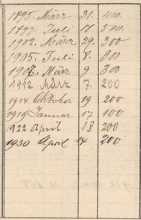 1895. März 31. 400.
1897. Juli 14 500.
1902. März 29. 300
1905. Juli 8. 800
1908. März 9 300
1912 März 7. 200
1914 Oktober 19 200
1919 Januar 17 100
1922 April 18 200
1930 April 14 200